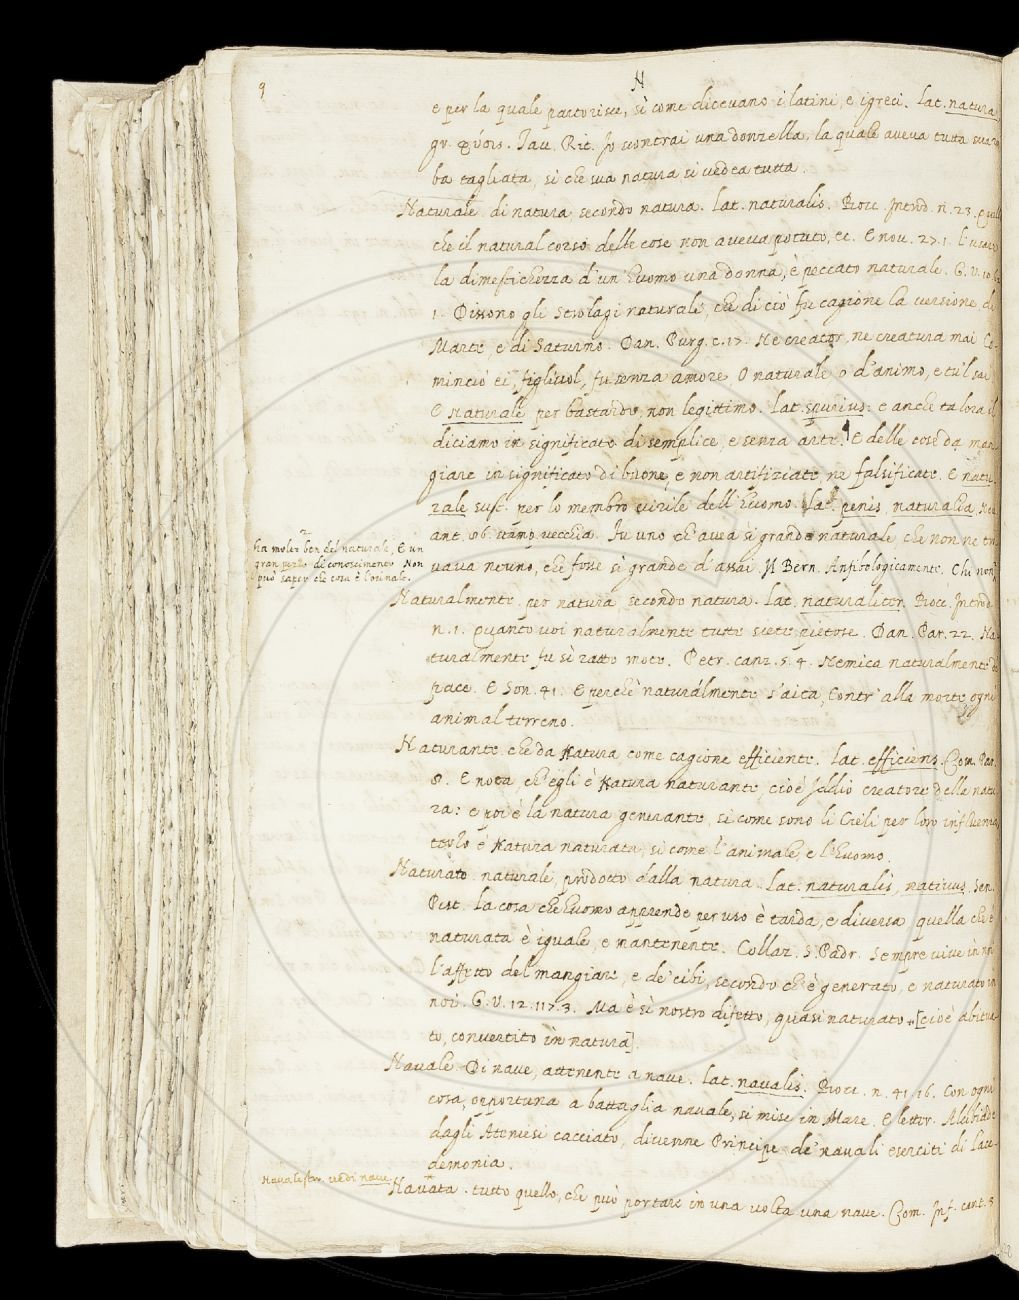 9
N
e per la quale partorisce, sì come dicevano i latini, e i greci. Lat. natura
gr. φύσις. Tav. Rit. Io vontrai una donzella, la quale aveva tutta sua
ba tagliata, sì che sua natura si vedea tutta.
Naturale. di natura, secondo natura. Lat. naturalis. Bocc. Introd. n. 23.
che il natural corso delle cose non aveva potuto, ec. E nov. 27. 1. L'usare
la dimestichezza d'un'huomo una donna, è peccato naturale. G. V. 10.
1. Dissono gli strolagi naturali, che di ciò fu cagione la versione di
Marte, e di Saturno. Dan. Purg. c. 17. Ne creator, ne creatura mai Co-
minciò ei, figliuol, fu senza amore O naturale o d'animo, e tu'l sai
E Naturale per bastardo, non legittimo. Lat. spurius: e anche talora il
diciamo in significato di semplice, e senza arte. E delle cose da man
giare in significato di buone, e non artifiziate, ne falsificate. E natu-
rale sust. per lo membro virile dell'huomo. Lat. penis, naturalia. Nov.
ant. 106. stamp. vecchia. Fu uno ch'avea sì grande naturale, che non ne tro
vava neuno, che fosse sì grande d'assai. Il Bern. Anfibologicamente. Chi non
ha molto ben del naturale, E un
gran pezzo di conoscimento Non
può saper che cosa è l'orinale.
Naturalmente. per natura, secondo natura. Lat. naturaliter. Bocc. Introd.
n. 1. quanto voi naturalmente tutte siete pietose. Dan. Par. 22. Na
turalmente fu sì ratto moto. Petr. canz. 5. 4. Nemica naturalmente di
pace. E Son. 41. E perchè naturalmente s'aita, Contr'alla morte ogni
animal terreno.
Naturante. che da Natura come cagione efficiente. Lat. efficiens. Com. Par.
8. E nota, ch'egli è Natura naturante, cioè Iddio creatore delle natu
ra: e poi è la natura generante, sì come sono li Cieli per loro influenza
è Natura naturata, sì come l'animale e l'huomo.
Naturato. naturale, prodotto dalla natura. Lat. naturalis, nativus. Sen.
Pist. La cosa che huomo apprende per uso è tarda, e diversa, quella che è
naturata è iguale, e mantenente. Collaz. S. Padr. Sempre vive in noi
l'affetto del mangiare, e de' cibi, secondo ch'è generato, e naturato in
noi. G. V. 12. 117. 3. Ma è sì nostro difetto, quasi naturato + [cioè abitua-
to, convertito in natura].
Navale. Di nave, attenente a nave. Lat. navalis. Bocc. n. 41. 16. Con ogni
cosa, opportuna a battaglia navale, si mise in Mare. E letter. Alcibiade
dagli Ateniesi cacciato, divenne Principe de' navali eserciti di Lace-
demonia.
Navalestro vedi nave.
Navata. tutto quello, che può portare in una volta una nave. Com. Inf. cant. 5